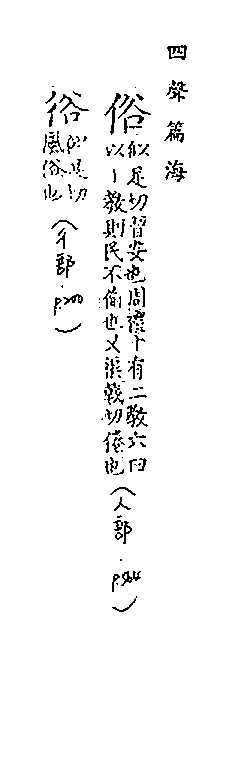 四聲篇海
俗 似足切習安也周禮十有二教六曰
以丨教則民不偷也又渠戟切倦也(人部.p.564)
㣽 似足切
風俗也(彳部.p.200)